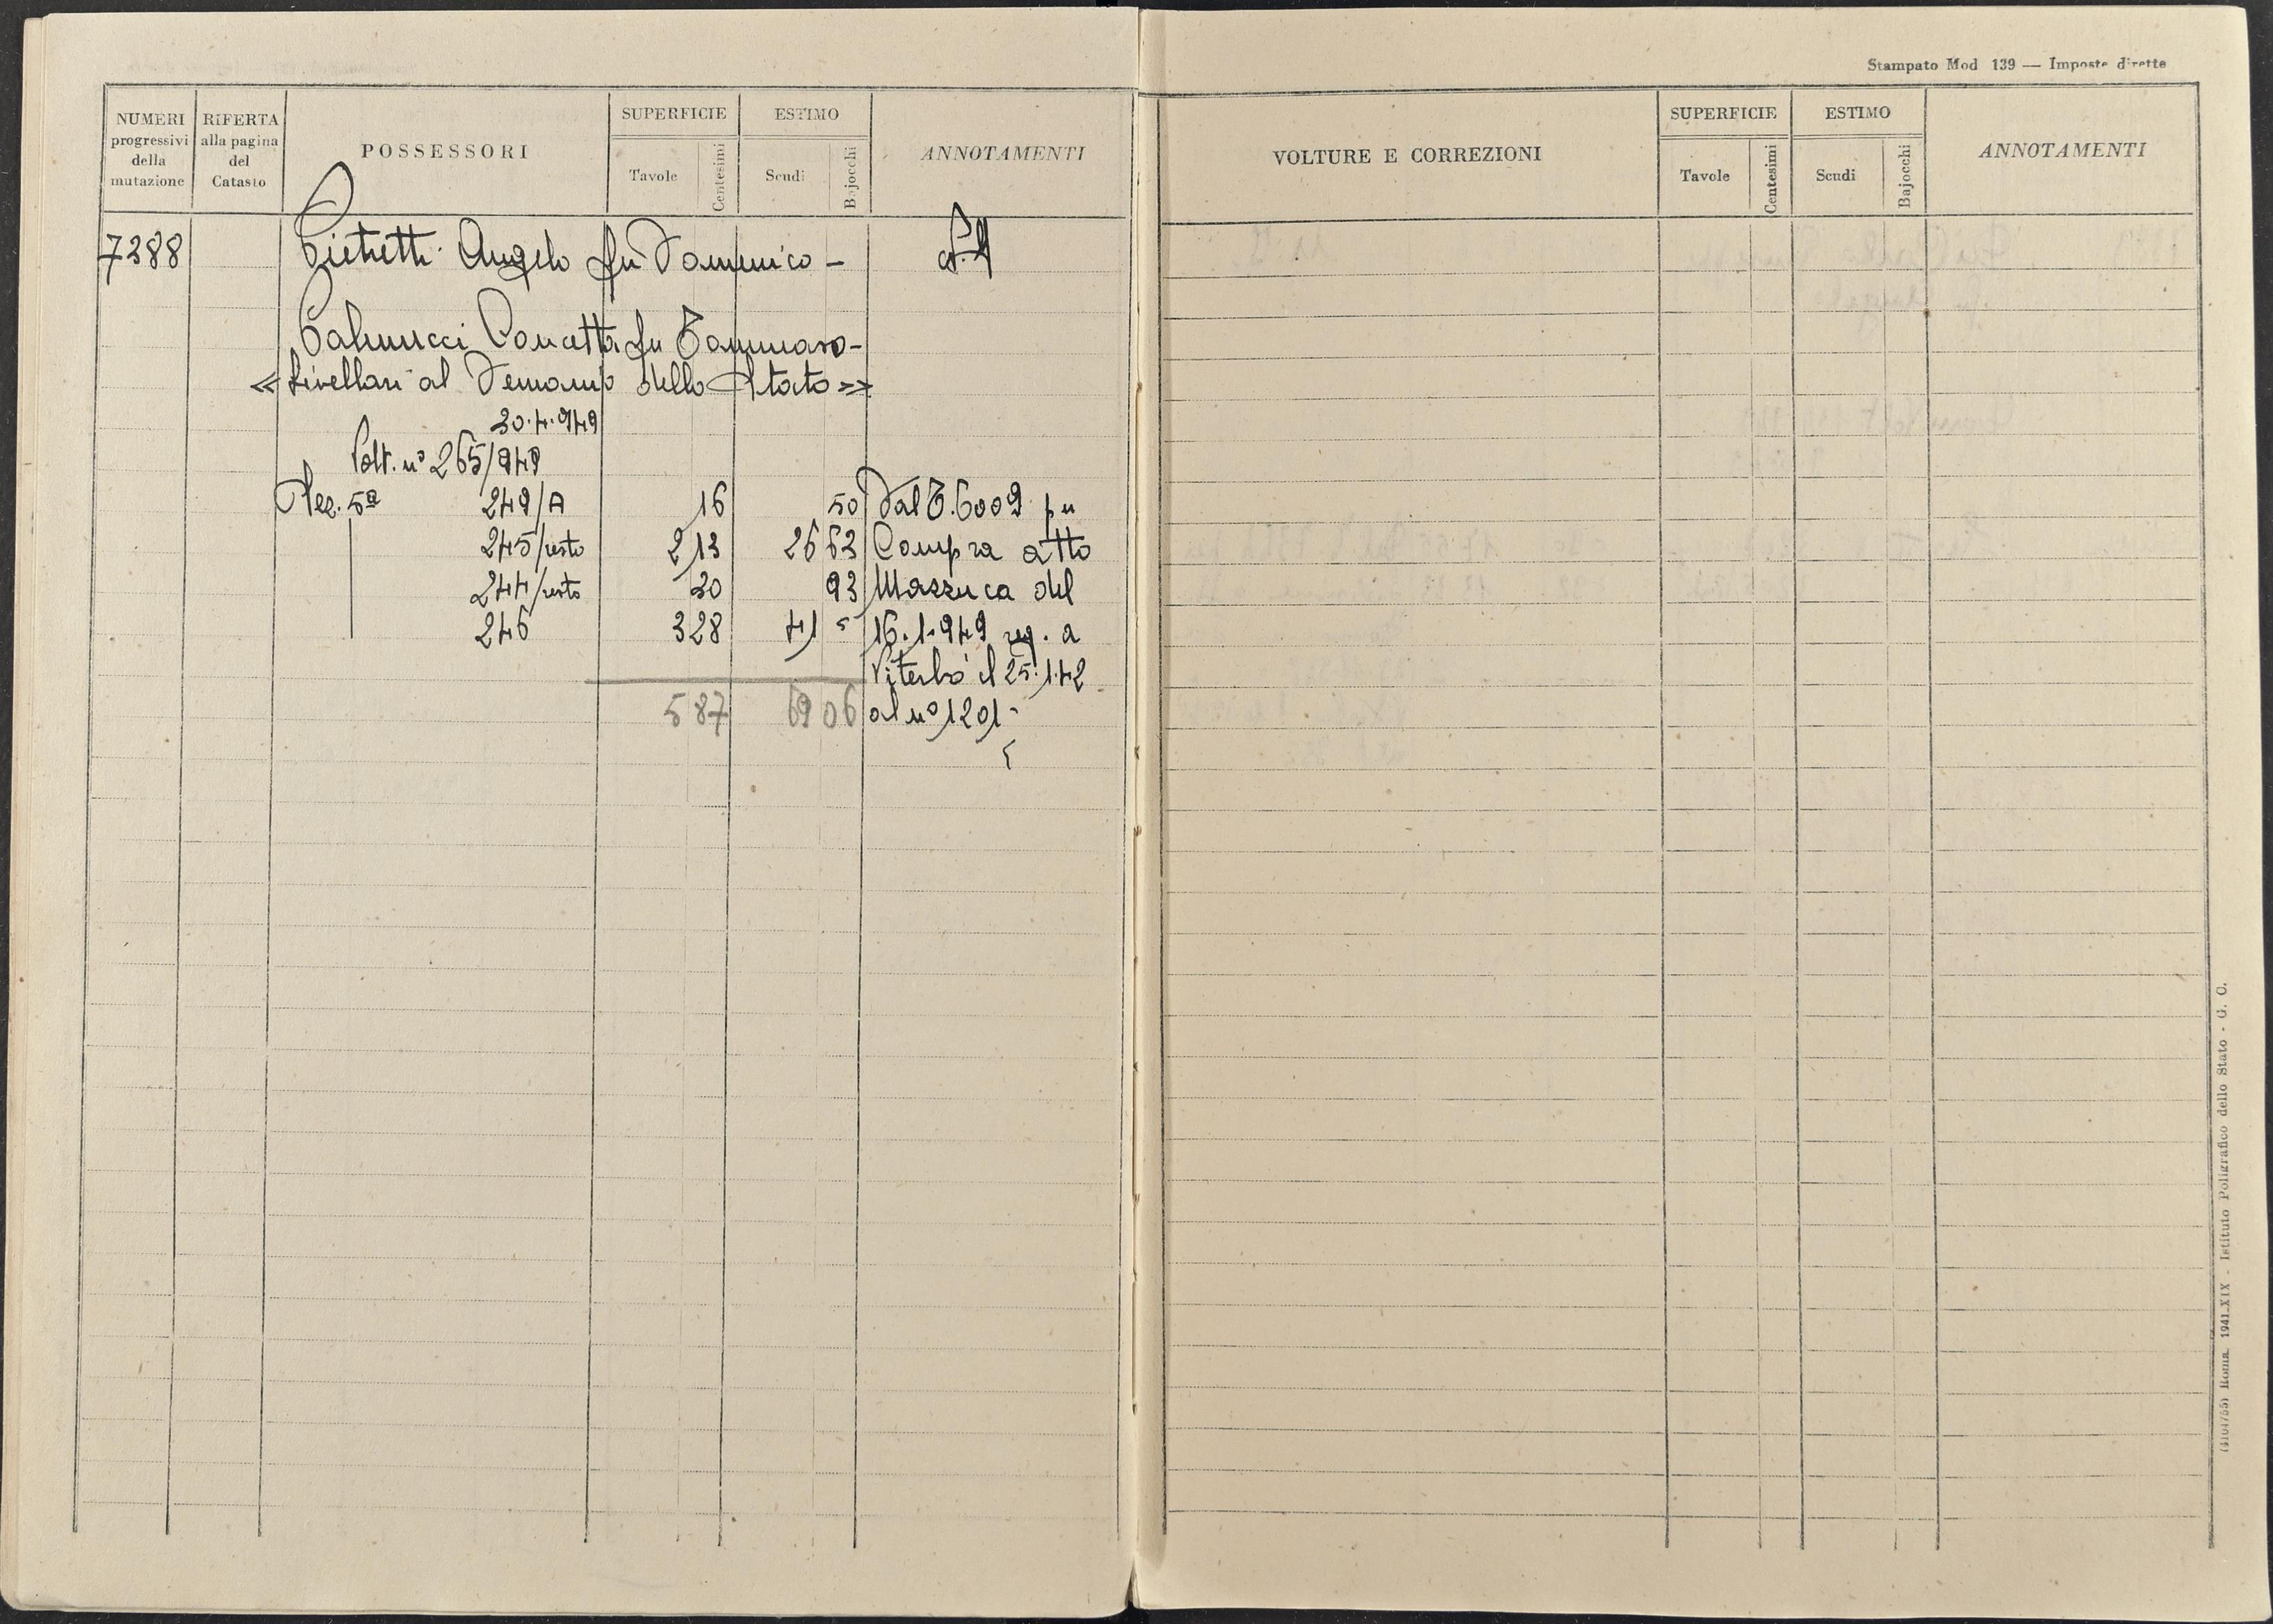 Stampato Mod 139 — Imposte dirette
NUMERI progressivi della mutazione
RIFERTA alla pagina del Catasto
POSSESSORI
SUPERFICIE
Tavole
Centesimi
ESTIMO
Scudi
Bajocchi
ANNOTAMENTI
VOLTURE E CORREZIONI
SUPERFICIE
Tavole
Centesimi
ESTIMO
Scudi
Bajocchi
ANNOTAMENTI
7288 Pietretti Angelo fu Domenico –
Palmucci Concetta fu Tommaso –
« livellari al Demanio dello Stato »
30.4.949
Volt. n° 265/949
Sez. 5a 249/A 16 50 Dal T. 6009 per
245/resto 2 13 26 63 Compra atto
244/resto 30 93 Mazzuca del
246 3 28 41 16.1.949 reg. a
Viterbo il 25.1.42
5 87 69 06 al n° 1201
(4104755) Roma, 1941-XIX - Istituto Poligrafico dello Stato - G. C.